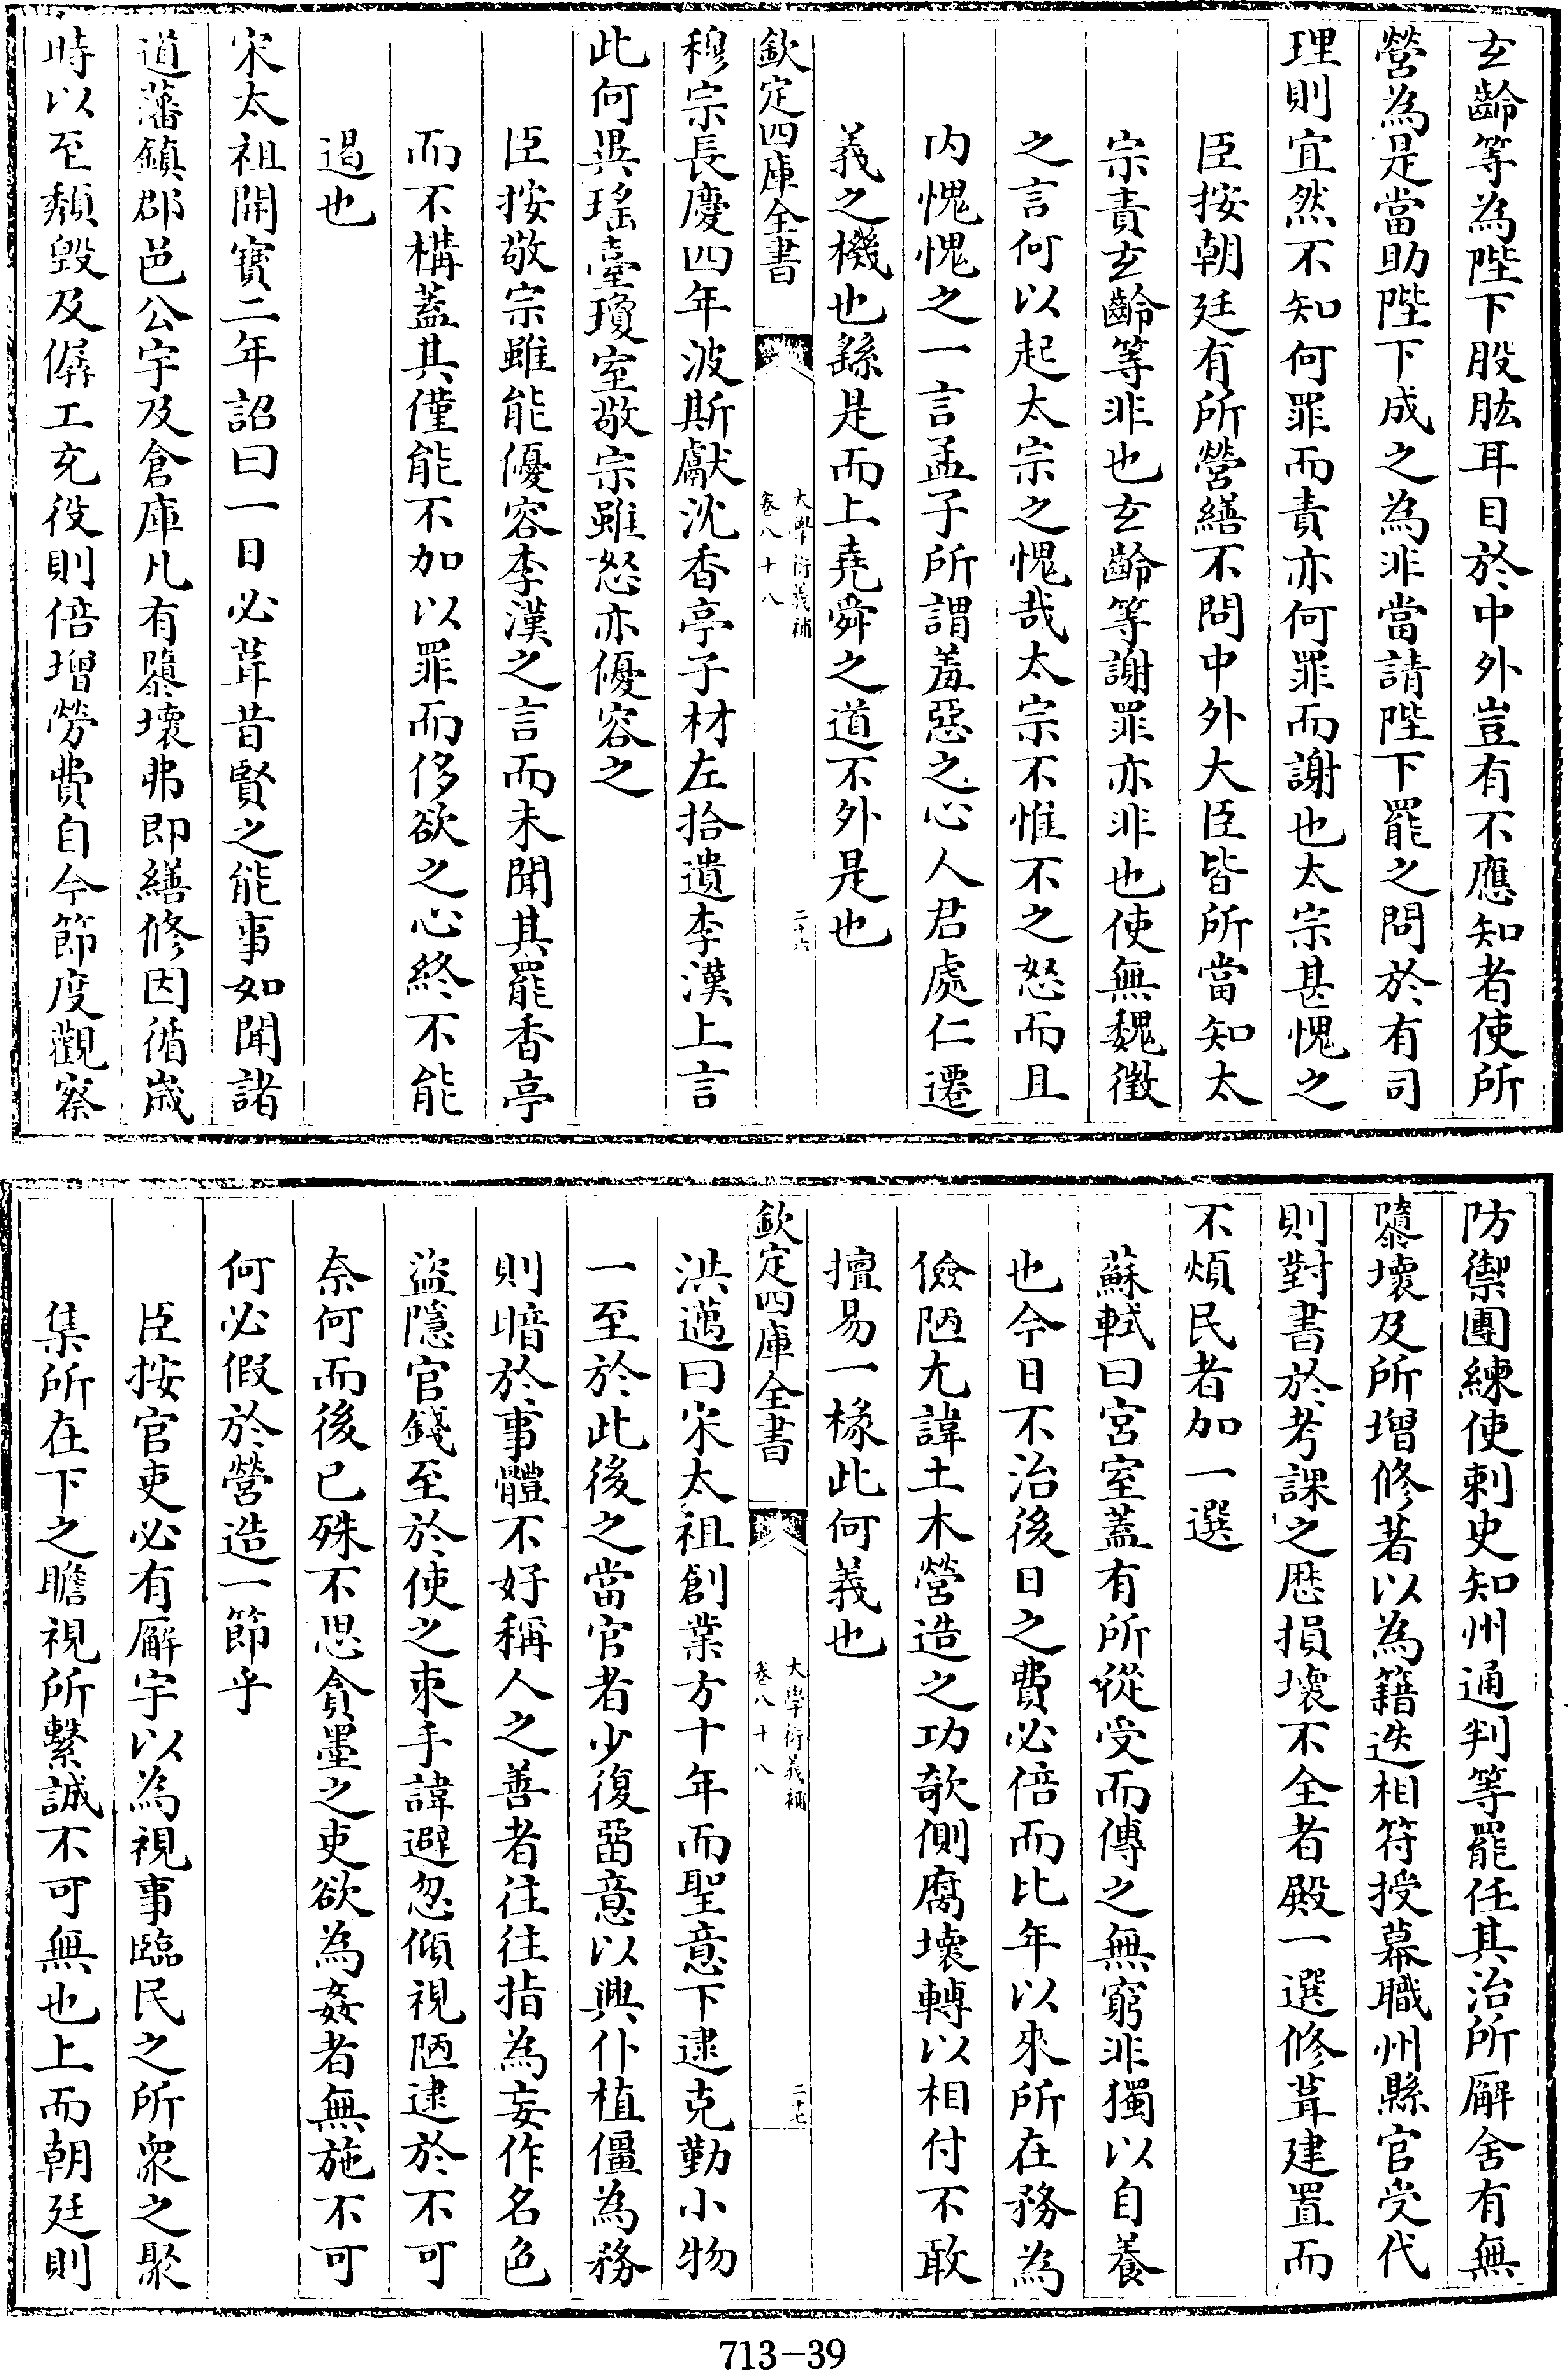 玄齡等為陛下股肱耳目於中外豈有不應知者使所
營為是當助陛下成之為非當請陛下罷之問於有司
理則宜然不知何罪而責亦何罪而謝也太宗甚愧之
臣按朝廷有所營繕不問中外大臣皆所當知太
宗責玄齡等非也玄齡等謝罪亦非也使無魏徵
之言何以起太宗之愧哉太宗不惟不之怒而且
内愧愧之一言孟子所謂羞惡之心人君處仁遷
義之機也繇是而上堯舜之道不外是也
欽定四庫全書
大學衍義補
卷八十八
二十六
穆宗長慶四年波斯獻沈香亭子材左拾遺李漢上言
此何異瑤臺瓊室敬宗雖怒亦優容之
臣按敬宗雖能優容李漢之言而未聞其罷香亭
而不構蓋其僅能不加以罪而侈欲之心終不能
遏也
宋太祖開寶二年詔曰一日必葺昔賢之能事如聞諸
道藩鎮郡邑公宇及倉庫凡有隳壞弗即繕修因循歲
時以至頹毀及僝工充役則倍增勞費自今節度觀察
防禦團練使剌史知州通判等罷任其治所廨舍有無
隳壞及所增修著以為籍迭相符授幕職州縣官受代
則對書於考課之歴損壞不全者殿一選修葺建置而
不煩民者加一選
蘇軾曰宮室蓋有所從受而傳之無窮非獨以自養
也今日不治後日之費必倍而比年以來所在務為
儉陋尤諱土木營造之功欹側腐壞轉以相付不敢
擅易一椽此何義也
欽定四庫全書
大學衍義補
卷八十八
二十七
洪邁曰宋太祖創業方十年而聖意下逮克勤小物
一至於此後之當官者少復畱意以興仆植僵為務
則暗於事體不好稱人之善者往往指為妄作名色
盜隱官錢至於使之束手諱避忽傾視陋逮於不可
奈何而後已殊不思貪墨之吏欲為姦者無施不可
何必假於營造一節乎
臣按官吏必有廨宇以為視事臨民之所衆之聚
集所在下之瞻視所繫誠不可無也上而朝廷則
713-39